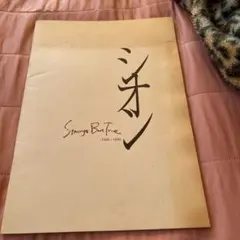 シオン
Strange But True